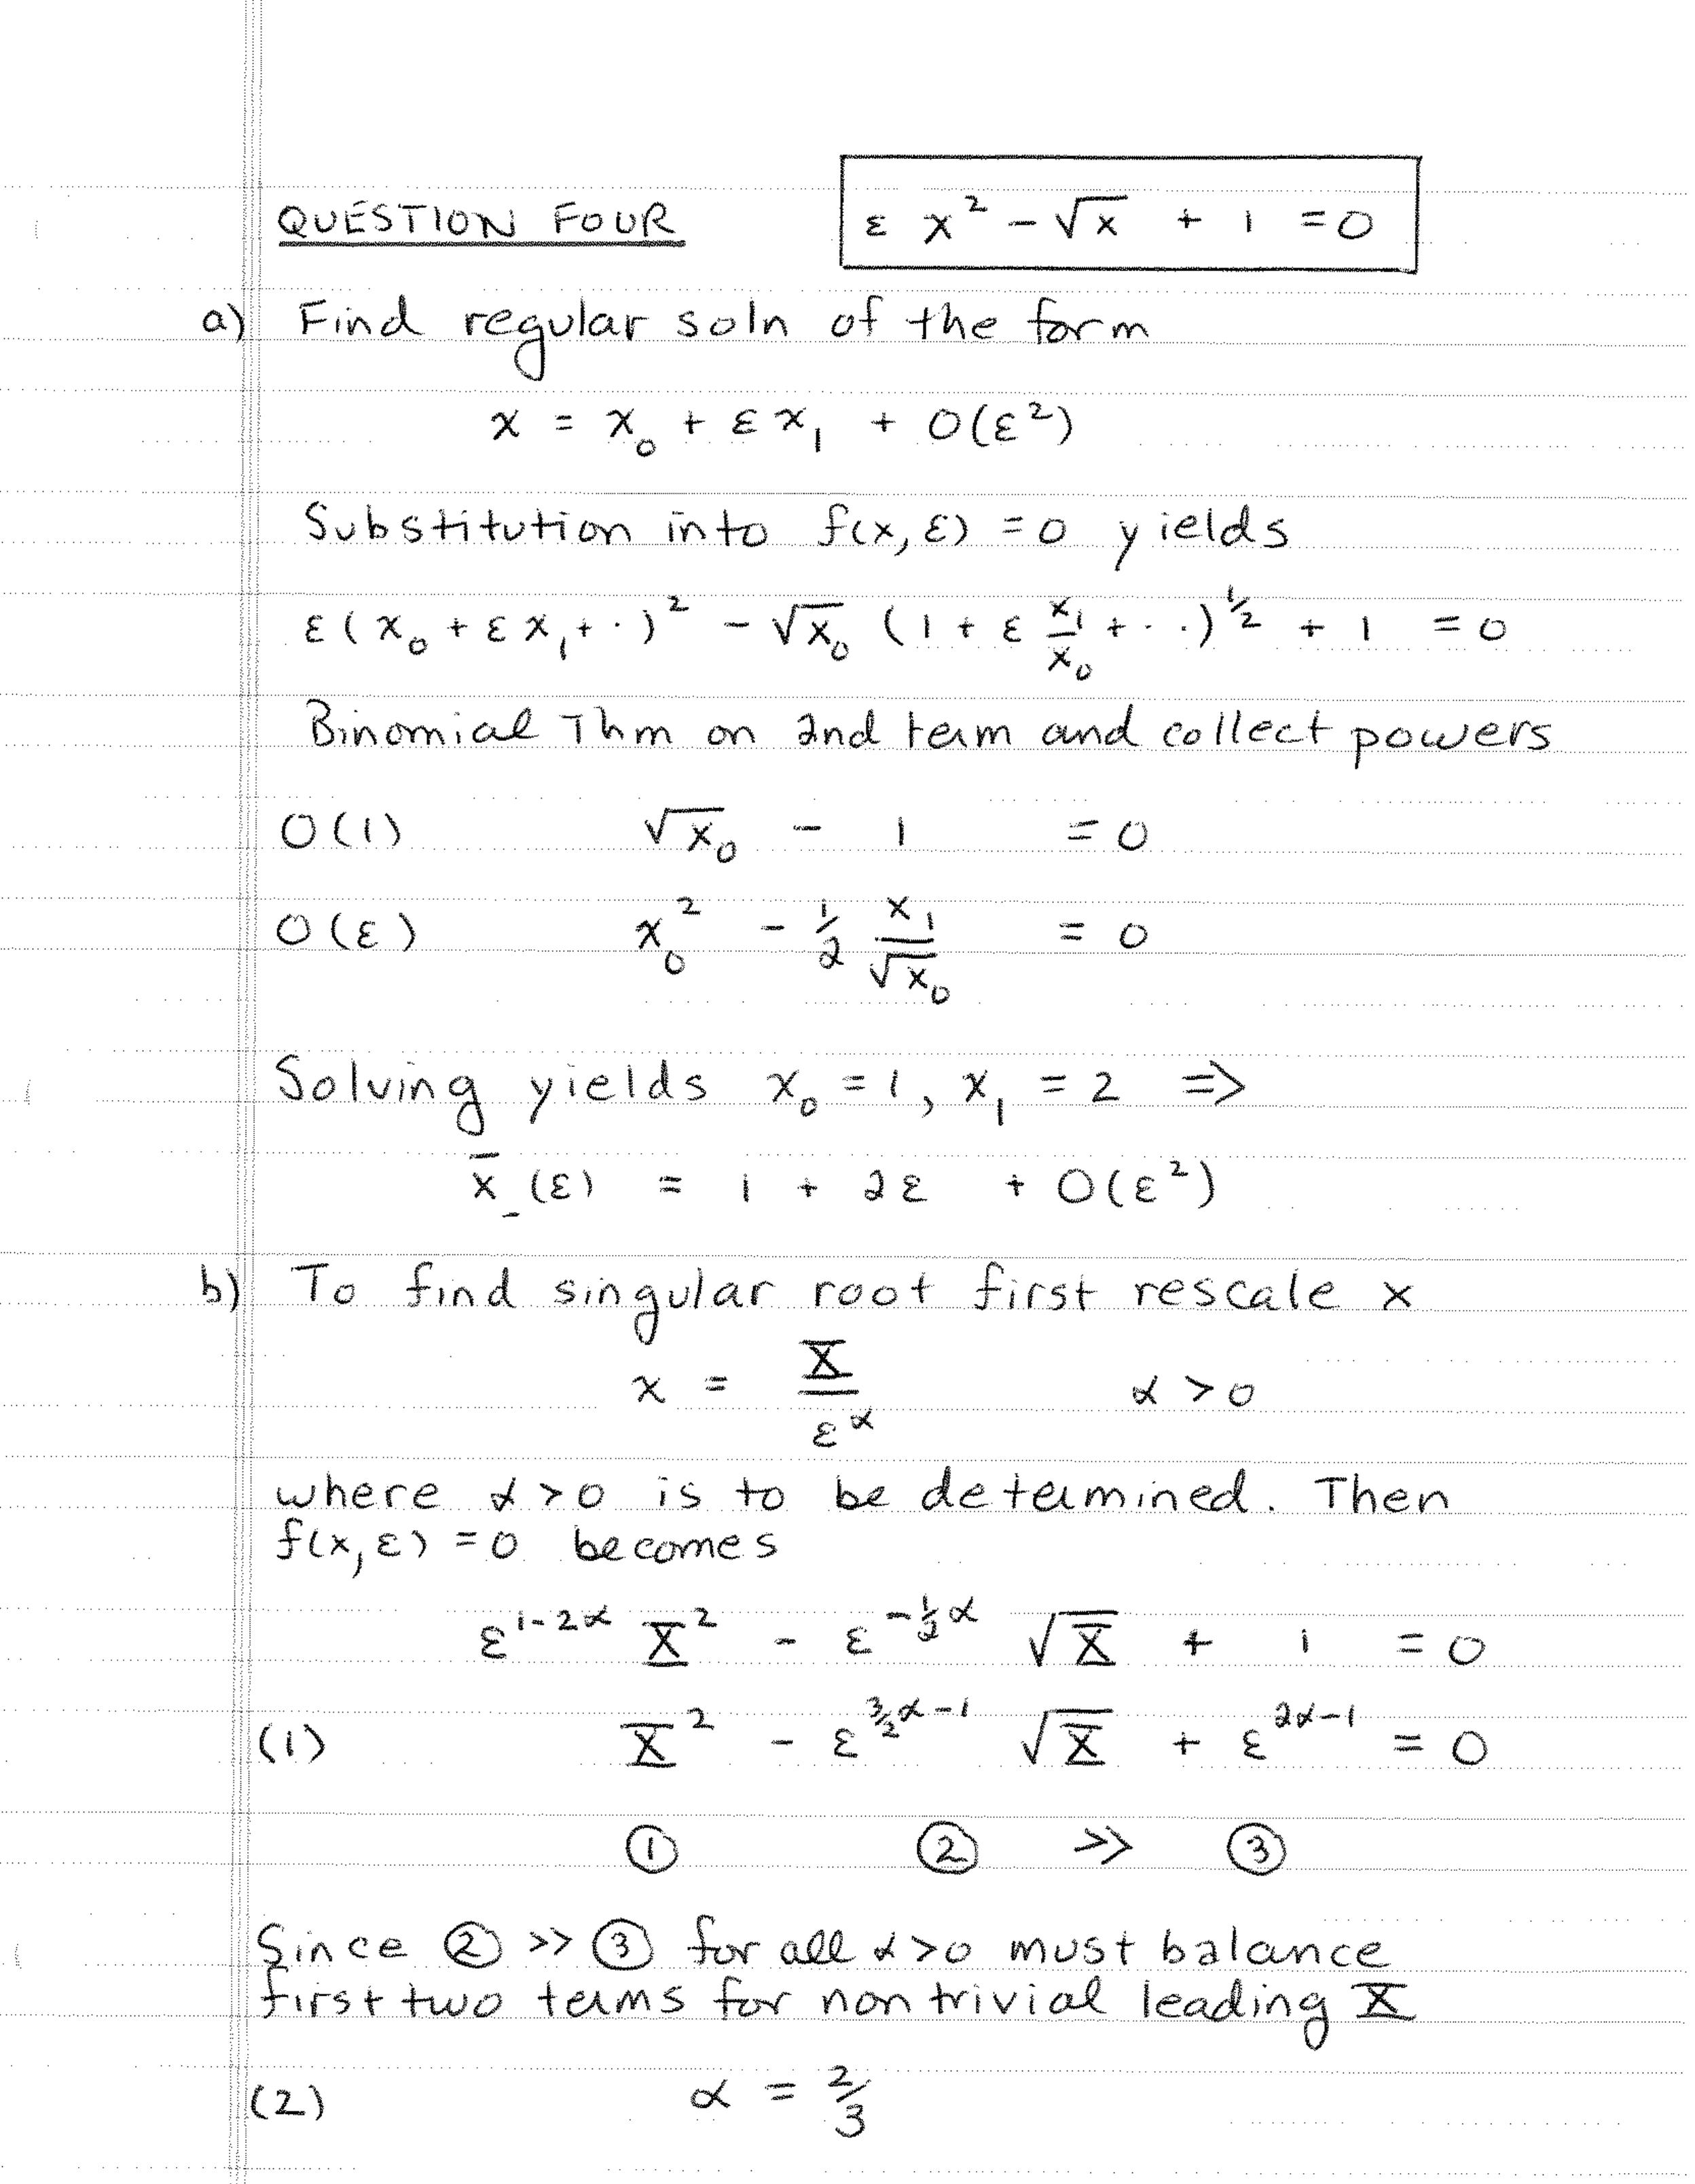 QUESTION FOUR ε x² - √x + 1 = 0
a) Find regular soln of the form
x = x₀ + ε x₁ + O(ε²)
Substitution into f(x, ε) = 0 yields
ε (x₀ + ε x₁ + ·)² - √x₀ (1 + ε x₁/x₀ + · ·)^½ + 1 = 0
Binomial Thm on 2nd term and collect powers
O(1) √x₀ - 1 = 0
O(ε) x₀² - ½ x₁/√x₀ = 0
Solving yields x₀ = 1, x₁ = 2 ⇒
x̄₋(ε) = 1 + 2ε + O(ε²)
b) To find singular root first rescale x
x = X/ε^α α > 0
where α > 0 is to be determined. Then
f(x, ε) = 0 becomes
ε^(1-2α) X² - ε^(-½α) √X + 1 = 0
(1) X² - ε^(3/2 α-1) √X + ε^(2α-1) = 0
① ② >> ③
Since ② >> ③ for all α > 0 must balance
first two terms for nontrivial leading X
(2) α = 2/3